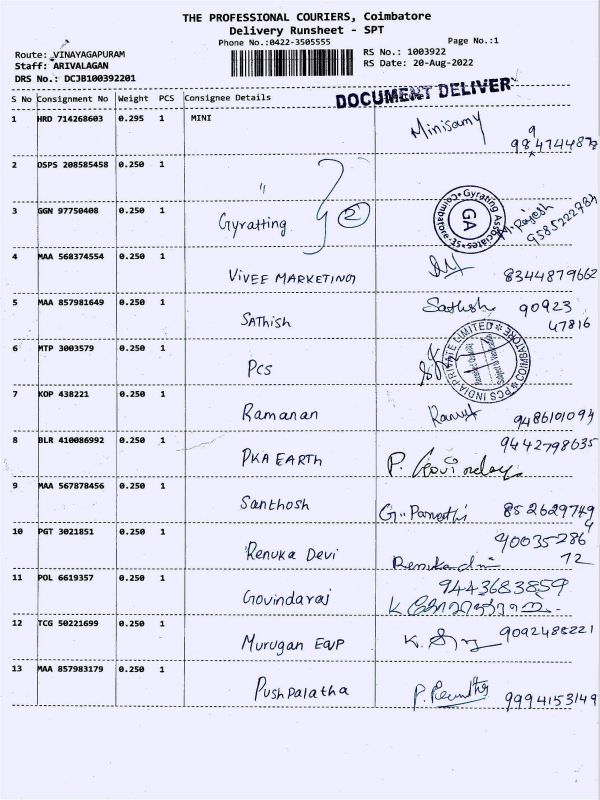 THE PROFESSIONAL COURIERS, Coimbatore
Delivery Runsheet - SPT
Phone No.:0422-3505555
Page No.:1
Route: VINAYAGAPURAM
Staff: ARIVALAGAN
DRS No.: DCJB100392201
RS No.: 1003922
RS Date: 20-Aug-2022
DOCUMENT DELIVERY
S No Consignment No Weight PCS Consignee Details
1 HRD 714268603 0.295 1 MINI Minisamy
2 OSPS 208585458 0.250 1 "
3 GGN 97750408 0.250 1 Gyratting 2 M. Rajesh 9585222784
Gyrating Associates
GA
4 MAA 568374554 0.250 1 VIVEE MARKETING 8344879662
5 MAA 857981649 0.250 1 SAThish Sathish 90923
47816
6 MTP 3003579 0.250 1 Pcs
PCS INDIA PRIVATE LIMITED * COIMBATORE *
7 KOP 438221 0.250 1 Ramanan 9486101094
8 BLR 410086992 0.250 1 PKA EARTH 9442798635
9 MAA 567878456 0.250 1 Santhosh G. Parvathi 852629749
4
10 PGT 3021851 0.250 1 Renuka Devi 900352864
72
11 POL 6619357 0.250 1 Govindaraj 9443683859
12 TCG 50221699 0.250 1 Murugan EQVP 9092488221
13 MAA 857983179 0.250 1 Pushpalatha 9994153149